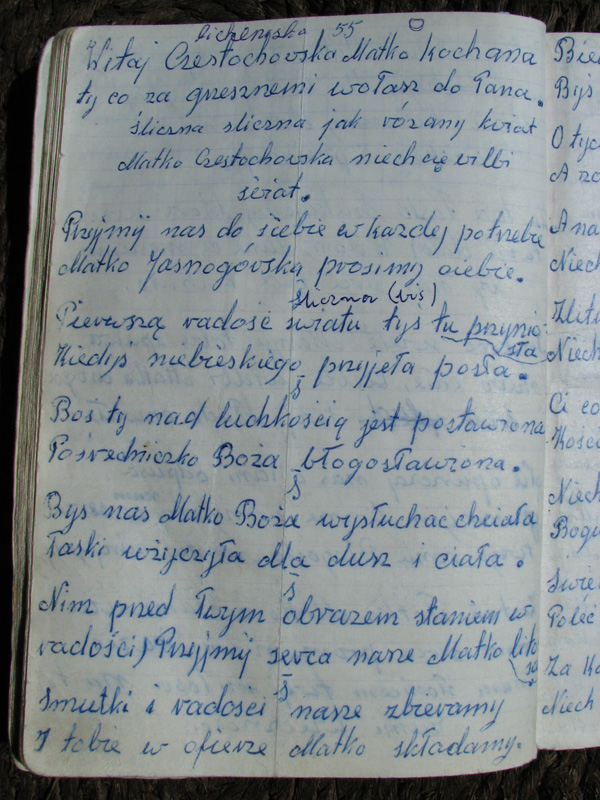 Licheńska 55
Witaj Czestochowska Matko kochana
ty co za grzesznemi wołasz do Pana.
śliczna sliczna jak różany kwiat
Matko Czestochowska niech cię wilbi
świat.
Przyjmij nas do siebie w każdej potrzebie
Matko Jasnogórską prosimy ciebie.
śliczna (bis)
Pierwszą radość światu tyś tu przynio-
sła
Kiedyś niebieskiego przyjęta posła.
Ś
Boś ty nad ludzkością jest postawiona
Pośredniczko Boża błogosławiona.
Ś
Bys nas Matko Boża wysłuchać chciała
łaski użyczyła dla dusz i ciała.
Ś
Nim pred Twym obrazem staniem w
radości) Przyjmij serca nasze Matko lito
ści
Ś
Smutki i radosci nasze zbieramy
I tobie w ofierze Matko składamy.
Bied
Byś
O tyc
A za
A na
Niech
Zlitu
Niech
Ci co
Kości
Niech
Bogu
Świę
Poleć
Za Ko
Niech